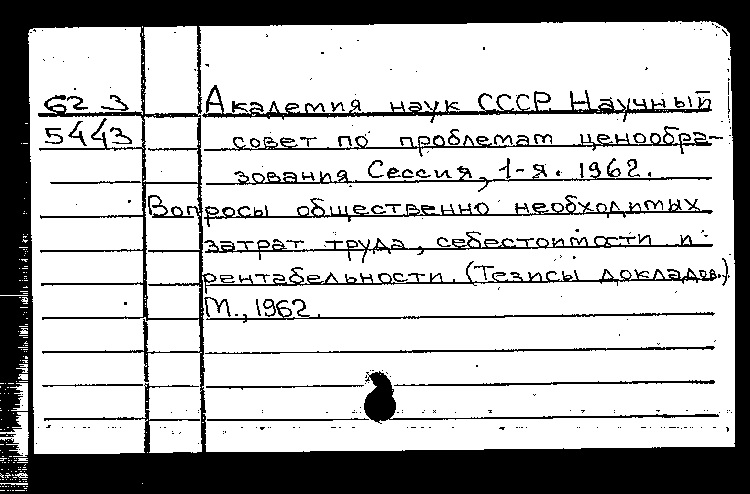 62 3
5443
Академия наук СССР. Научный
совет по проблемам ценообра-
зования. Сессия, 1-я. 1962.
Вопросы общественно необходимых
затрат труда, себестоимости и
рентабельности. (Тезисы докладов.)
М., 1962.